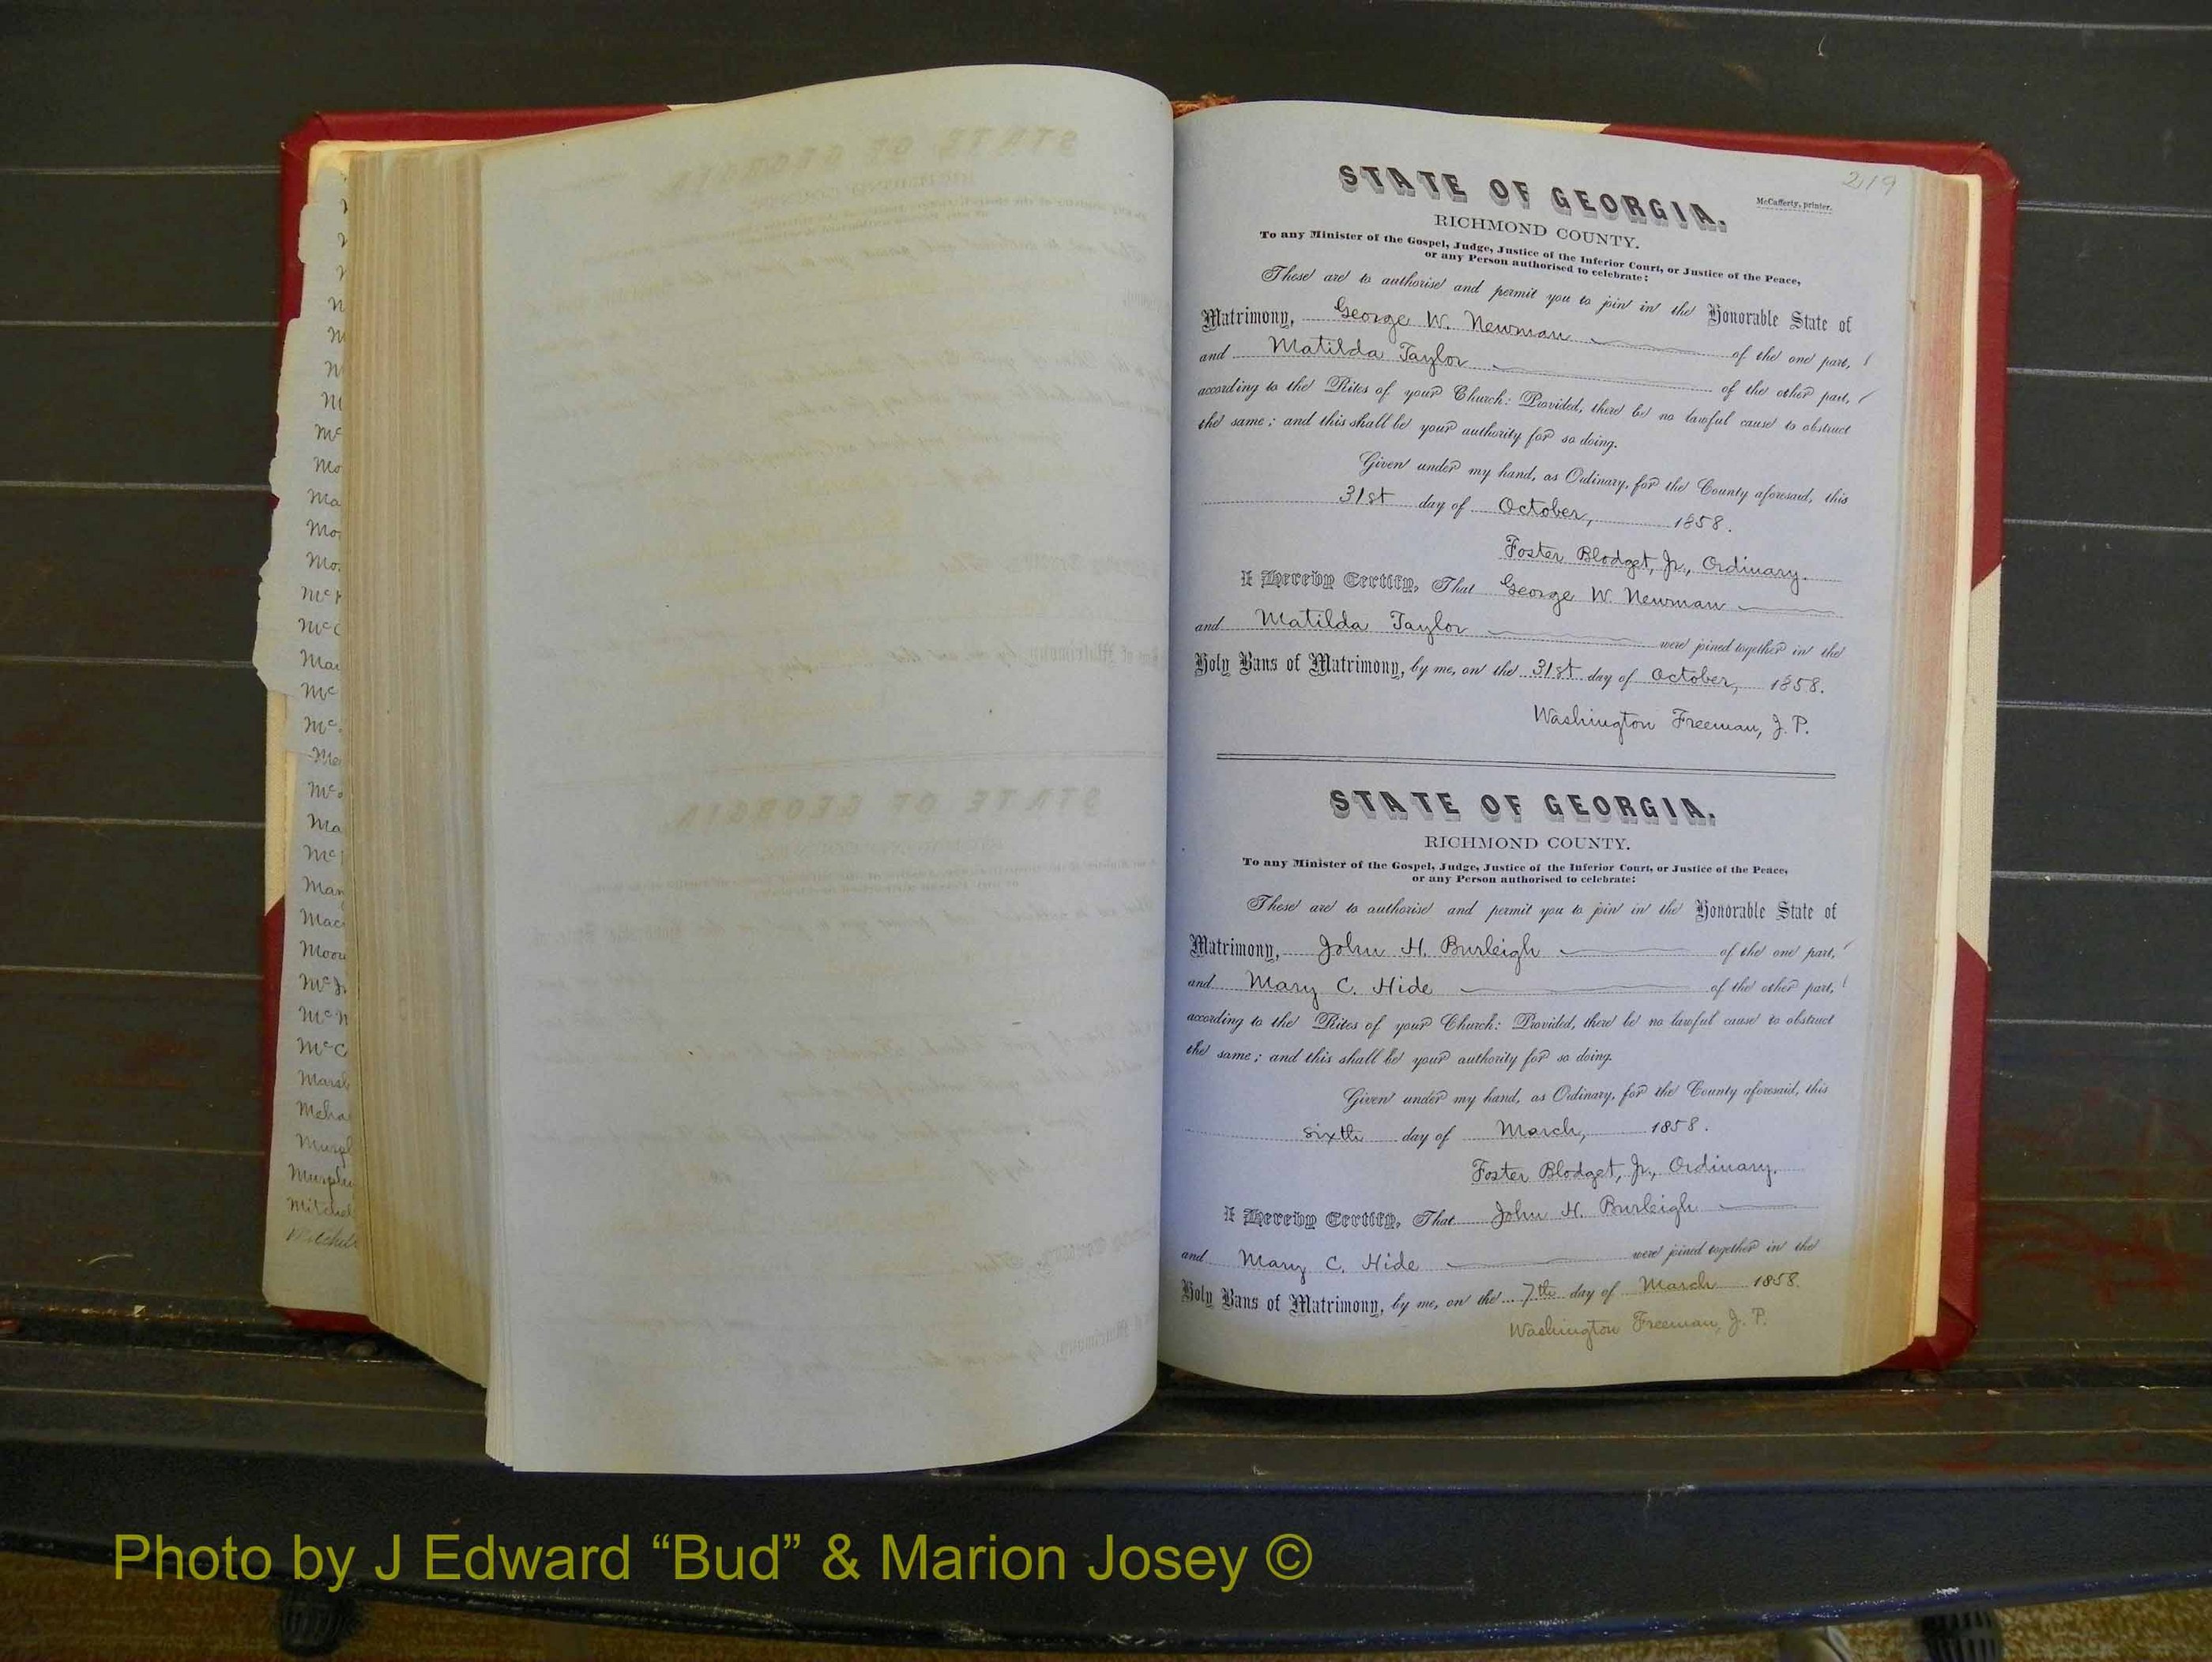 219
STATE OF GEORGIA.
McCafferty, printer.
RICHMOND COUNTY.
To any Minister of the Gospel, Judge, Justice of the Inferior Court, or Justice of the Peace,
or any Person authorised to celebrate:
These are to authorise and permit you to join in the Honorable State of
Matrimony, George W. Newman of the one part,
and Matilda Taylor of the other part,
according to the Rites of your Church: Provided, there be no lawful cause to obstruct
the same; and this shall be your authority for so doing.
Given under my hand, as Ordinary, for the County aforesaid, this
31st day of October, 1858.
Foster Blodget, Jr., Ordinary.
I Hereby Certify, That George W. Newman
and Matilda Taylor were joined together in the
Holy Bans of Matrimony, by me, on the 31st day of October, 1858.
Washington Freeman, J. P.
STATE OF GEORGIA.
RICHMOND COUNTY.
To any Minister of the Gospel, Judge, Justice of the Inferior Court, or Justice of the Peace,
or any Person authorised to celebrate:
These are to authorise and permit you to join in the Honorable State of
Matrimony, John H. Burleigh of the one part,
and Mary C. Hide of the other part,
according to the Rites of your Church: Provided, there be no lawful cause to obstruct
the same; and this shall be your authority for so doing.
Given under my hand, as Ordinary, for the County aforesaid, this
sixth day of March, 1858.
Foster Blodget, Jr., Ordinary.
I Hereby Certify, That John H. Burleigh
and Mary C. Hide were joined together in the
Holy Bans of Matrimony, by me, on the 7th day of March 1858.
Washington Freeman, J. P.
Photo by J Edward “Bud” & Marion Josey ©